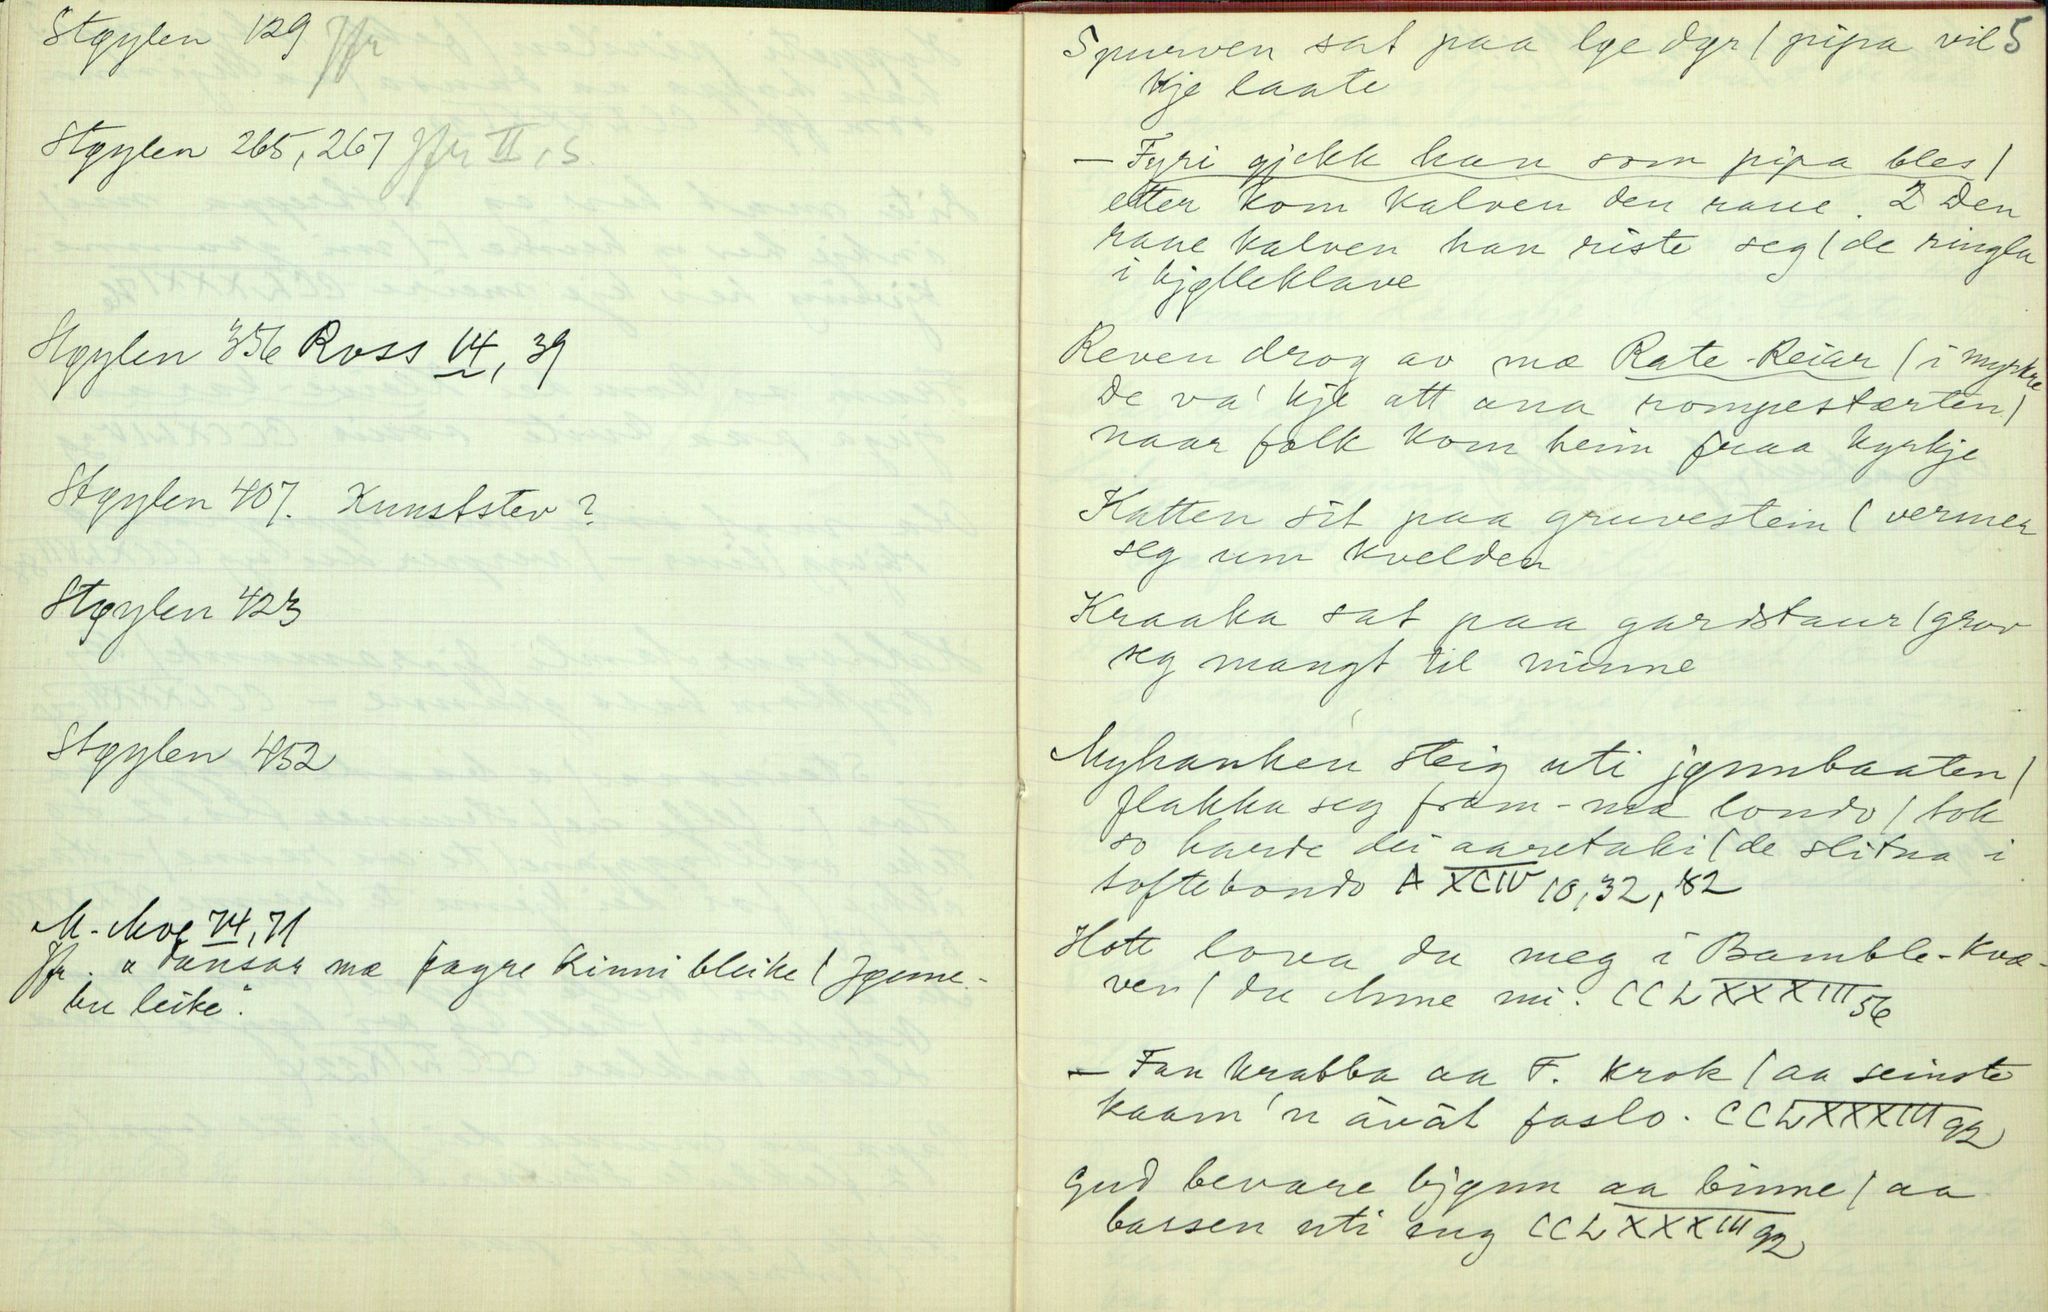 Støylen 129 Jfr
Støylen 265, 267 Jfr II, 5.
Støylen 356 Ross VI, 39
Støylen 407. Kunststev?
Støylen 423
Støylen 452
M. Moe 74, 71
Jfr. "Dansar mæ fagre kinni bleike / Jgeme-
bu leike".
5
Spurven sat paa lge dør / pipa vil
kje laate
— Fyri gjekk han som pipa bles /
etter kom kalven den raue. 2 Den
raue kalven han riste seg / de ringla
i bjølleklave
Reven drog av mæ Rate-Reiar / i myrkre
De va' kje att ana rompestærten /
naar folk kom heim fraa kyrkje
Katten sit paa gruvestein / vermer
seg um kvelden
Kraaka sat paa gardstaur / grov
seg mangt til minne
Myhanken steig uti jønnbaaten /
flakka seg fram-mæ londo / tok
so harde dei aaretaki / de slitna i
toftebondo A XCIV 10, 32, 82
Hott lova du meg i Bamble-Kvæ-
ven / du mi. CCLXXXIII 56
— Fan krabba aa F. krok / aa seinste
kaam'n åvåt faslo. CCLXXXIII 92
Gud bevare bjønn aa binne / aa
bassen uti rug CCLXXXIII 92